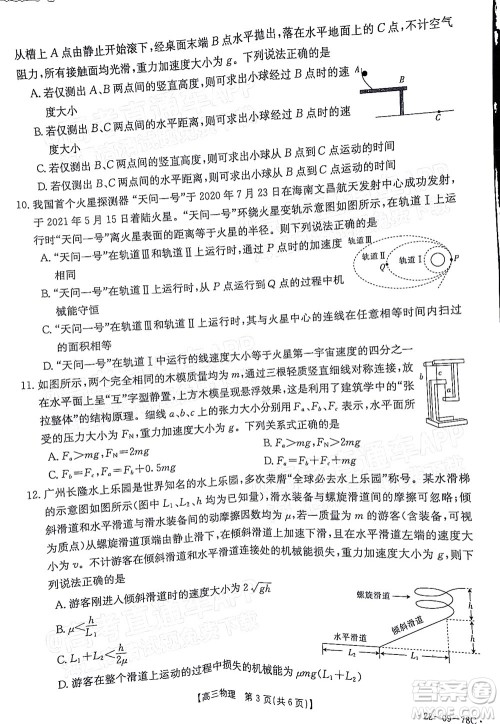 从槽上 A 点由静止开始滚下，经桌面末端 B 点水平抛出，落在水平地面上的 C 点，不计空气
阻力，所有接触面均光滑，重力加速度大小为 g。下列说法正确的是
A. 若仅测出 A、B 两点间的竖直高度，则可求出小球经 B 点时的速
度大小
B. 若仅测出 B、C 两点间的水平距离，则可求出小球经 B 点时的速
度大小
C. 若仅测出 A、B 两点间的竖直高度，则可求出小球从 B 点到 C 点运动的时间
D. 若仅测出 B、C 两点间的竖直高度，则可求出小球从 B 点到 C 点运动的时间
A
B
C
10. 我国首个火星探测器“天问一号”于 2020 年 7 月 23 日在海南文昌航天发射中心成功发射，
于 2021 年 5 月 15 日着陆火星。“天问一号”环绕火星变轨示意图如图所示，在轨道Ⅰ上运
行时“天问一号”离火星表面的距离等于火星的半径。下列说法正确的是
A. “天问一号”在轨道Ⅱ上运行时，从 P 点到 Q 点的过程中机
械能守恒
B. “天问一号”在轨道Ⅲ和轨道Ⅱ上运行，经过 P 点时的速度相同
C. “天问一号”在轨道Ⅲ和轨道Ⅱ上运行时，与火星中心的连线在任意相等时间内扫过的面
积相等
D. “天问一号”在轨道Ⅰ运行的线速度大小等于火星第一宇宙速度的四分之一
轨道Ⅲ
轨道Ⅱ
轨道Ⅰ
P
Q
11. 如图所示，两个完全相同的木模质量均为 m，通过三根轻质竖直细线对称连接，
在水平面上呈“互”字型静置，上方木模呈现悬浮效果，这是利用了建筑学中的“张
拉整体”的结构原理。细线 a、b、c 上的张力大小分别用 Fa、Fb、Fc 表示，水平面所
受的压力大小为 FN，重力加速度大小为 g。下列说法正确的是
A. Fa>mg，FN=2mg
B. Fa>mg，FN<2mg
C. Fb=Fc，Fa=Fb+0.5mg
D. Fb=Fc，Fa=2Fb+mg
b
c
a
12. 广州长隆水上乐园是世界知名的水上乐园，多次荣膺“全球必去水上乐园”称号。某水滑梯
的示意图如图所示（图中 L₁、L₂、h 均已知），倾斜滑道与螺旋滑道间的摩擦可忽略，
倾斜滑道和水平滑道间的动摩擦因数恒为 μ，游客从螺旋滑道上端滑下，在水平滑道左端速度恰好为 0（可
视为质点），不计游客在倾斜滑道和水平滑道连接处的机械能损失，重力加速度大小为 g。下
列说法正确的是
A. 游客刚进入倾斜滑道时的速度大小为 2√gh
B. μ<h/L₁
C. μ=h/2μ
D. 游客在倾斜滑道上损失的机械能为 μmg(L₁+L₂)
螺旋滑道
倾斜滑道
水平滑道
h
h
L₂
L₁
【高三物理　第 3 页（共 6 页）】